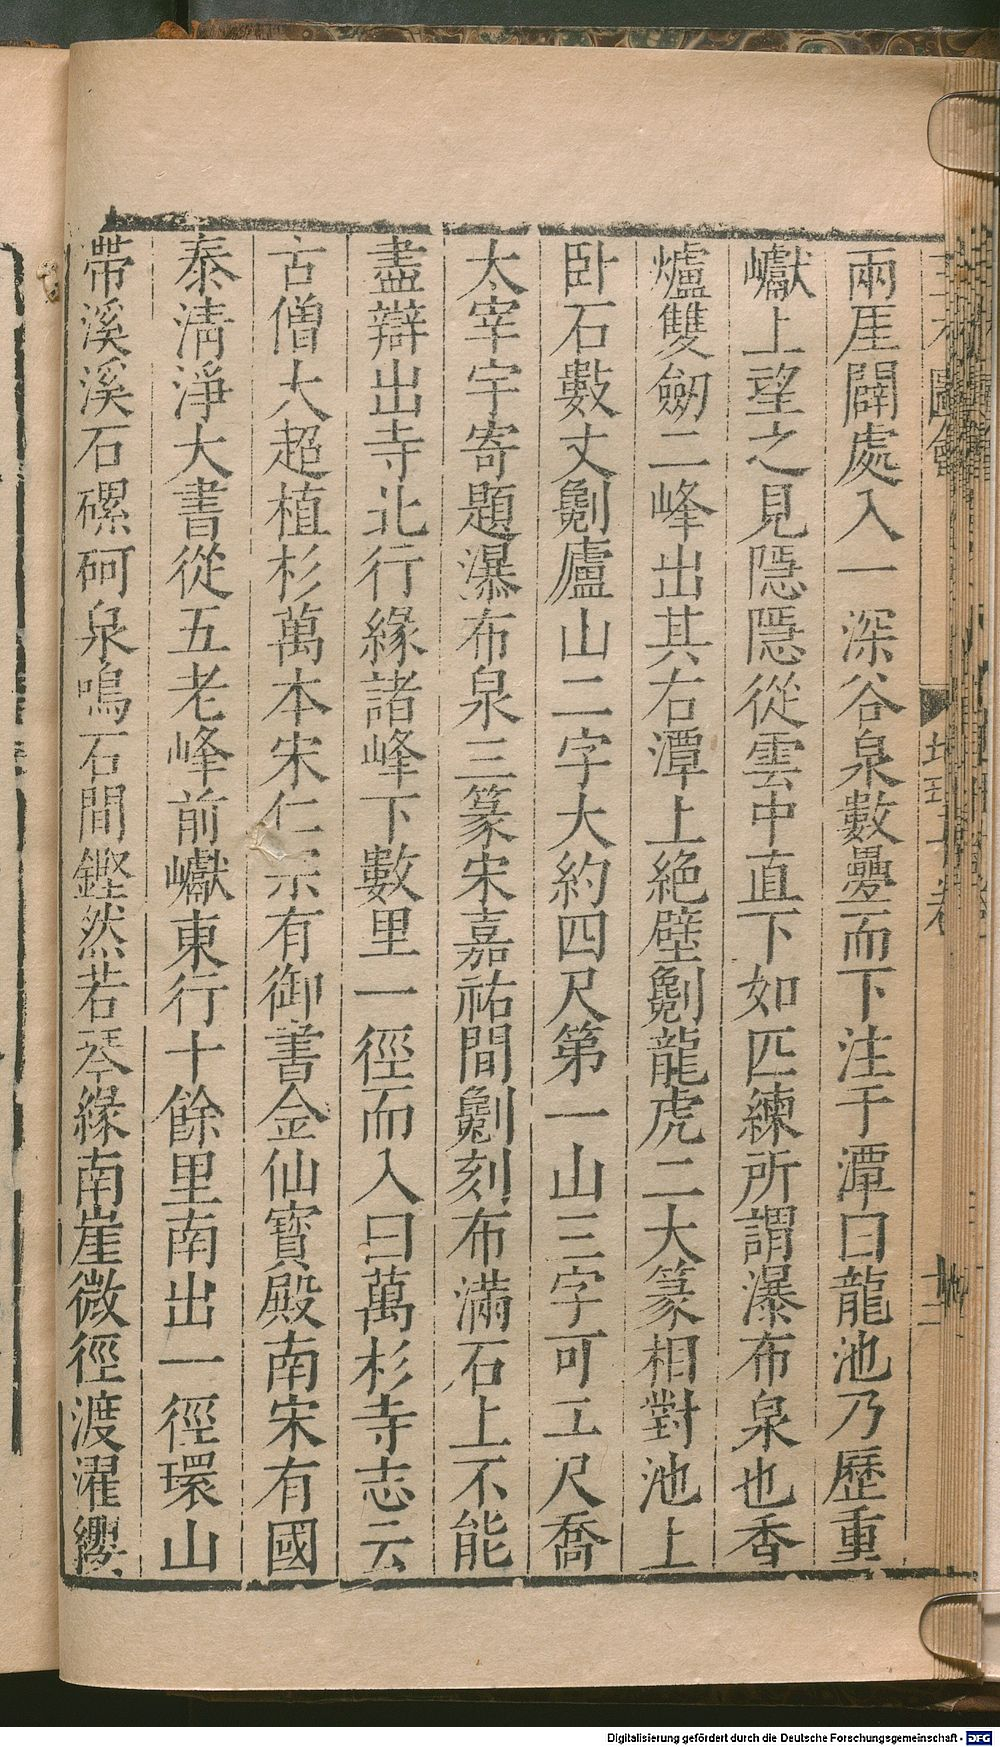 兩厓闢處入一深谷泉數疊而下注于潭曰龍池乃歷重
巘上望之見隱隱從雲中直下如匹練所謂瀑布泉也香
爐雙劒二峰出其右潭上絶壁劖龍虎二大篆相對池上
卧石數丈劖廬山二字大約四尺第一山三字可工尺喬
太宰宇寄題瀑布泉三篆宋嘉祐間劖刻布滿石上不能
盡辯出寺北行緣諸峰下數里一徑而入曰萬杉寺志云
古僧大超植杉萬本宋仁宗有御書金仙寶殿南宋有國
泰清淨大書從五老峰前巘東行十餘里南出一徑環山
帶溪溪石磥砢泉鳴石間鏗然若琴緣南崖微徑渡濯纓
Digitalisierung gefördert durch die Deutsche Forschungsgemeinschaft - DFG